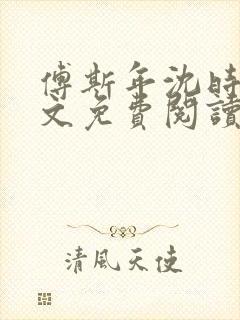 傅斯年沈時
文免費閱讀
清風天使